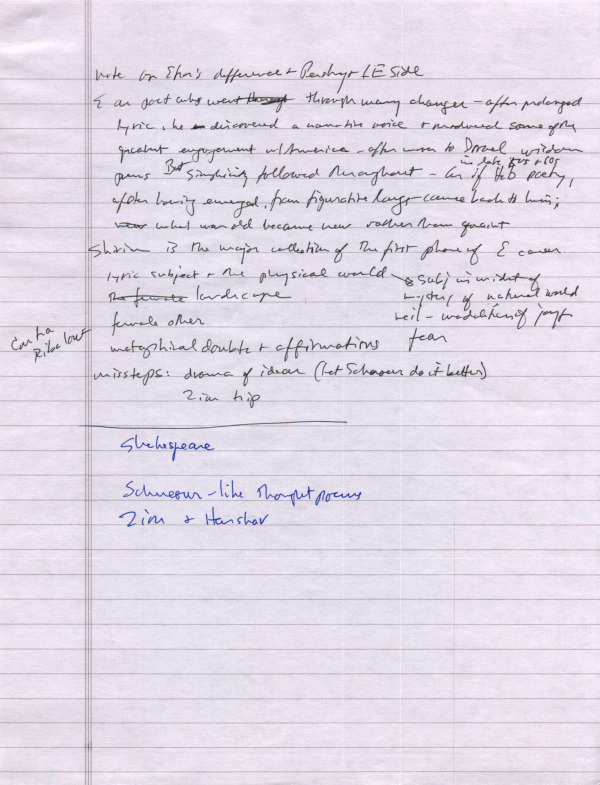 note on Efros's difference + Persky + LE Side
E as poet who went through through many changes – after prolonged
lyric, he discovered a narrative voice + produced some of the
greatest engagement w/ America – after wards to Dorael wisdom
in late 50s + 60s
poems But simplicity followed throughout – as if Heb poetry,
after having emerged from figurative langs came back to him;
what was old became new rather than quaint
Shirim is the major collection of the first phase of E career
lyric subject + the physical world
the female landscape
female other
metaphysical doubts + affirmations
missteps: drama of ideas (let Schneour do it better)
Zion trip
subj in midst of
mystery of natural world
veil – modalities of joy +
fear
Contra
Ribalow
Shekespeare
Schneour-like thought poems
Zion + Hanshar